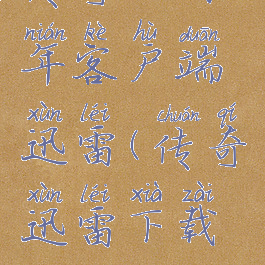 nián kè hù duān
年客户端
xùn léi chuán qí
迅雷(传奇
xùn léi xià zài
迅雷下载